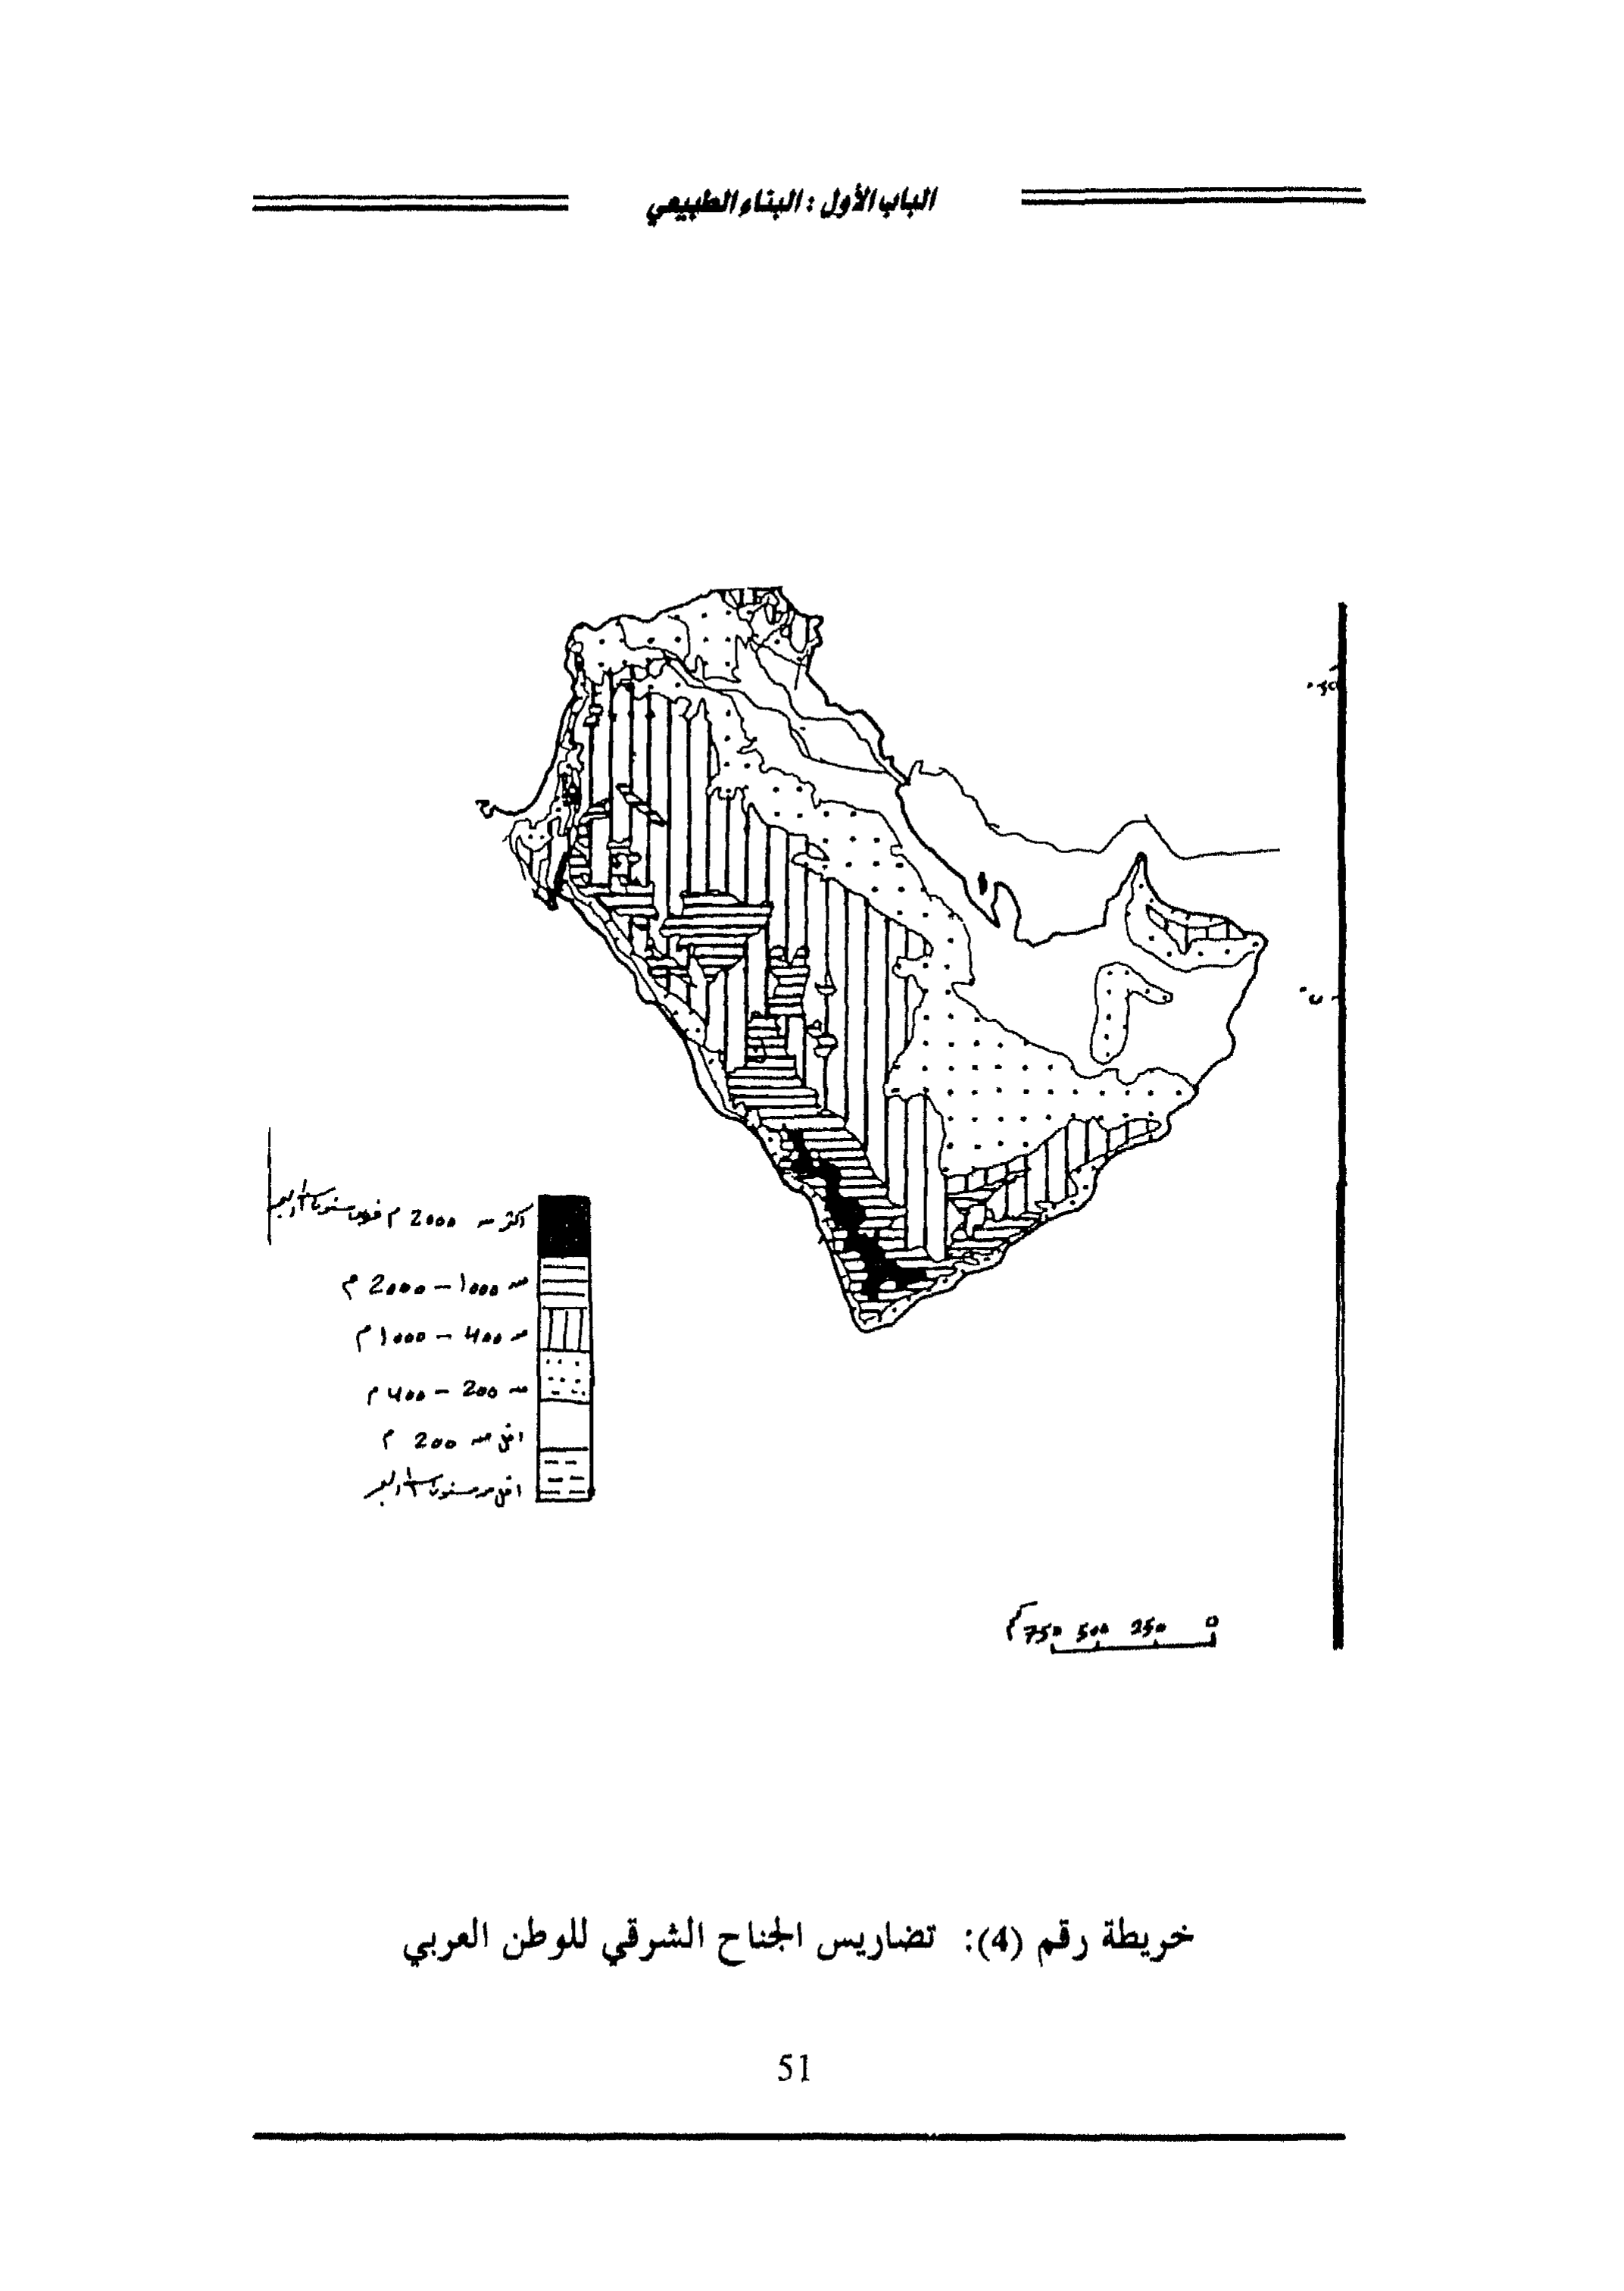 الباب الأول : البناء الطبيعي
أكثر من 2000 م فوق مستوى سطح البحر
من 1000 – 2000 م
من 400 – 1000 م
من 200 – 400 م
اقل من 200 م
اقل من مستوى سطح البحر
0 250 500 750
خريطة رقم (4): تضاريس الجناح الشرقي للوطن العربي
51